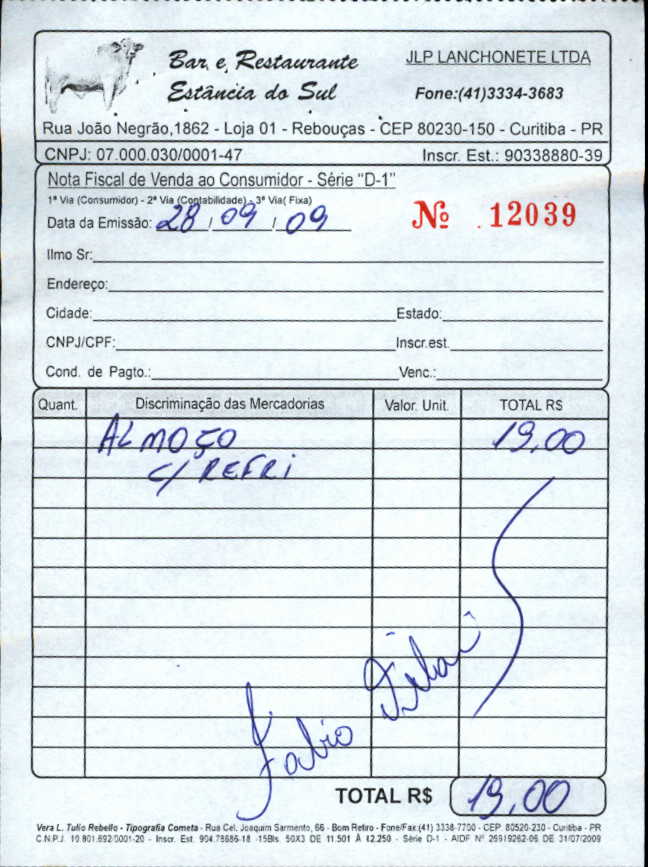 Bar e Restaurante
Estância do Sul
JLP LANCHONETE LTDA
Fone:(41)3334-3683
Rua João Negrão,1862 - Loja 01 - Rebouças - CEP 80230-150 - Curitiba - PR
CNPJ: 07.000.030/0001-47 Inscr. Est.: 90338880-39
Nota Fiscal de Venda ao Consumidor - Série "D-1"
1ª Via (Consumidor) - 2ª Via (Contabilidade) - 3ª Via( Fixa)
Data da Emissão: 28 / 09 / 09
Nº 12039
Ilmo Sr:
Endereço:
Cidade: Estado:
CNPJ/CPF: Inscr.est.
Cond. de Pagto.: Venc.:
Quant. Discriminação das Mercadorias Valor. Unit. TOTAL R$
ALMOÇO 19,00
C/ REFRI
Fabio
TOTAL R$ 19,00
Vera L. Tulio Rebello - Tipografia Cometa - Rua Cel. Joaquim Sarmento, 66 - Bom Retiro - Fone/Fax:(41) 3338-7700 - CEP. 80520-230 - Curitiba - PR
C.N.P.J. 10.801.692/0001-20 - Inscr. Est. 904.78686-18 -15Bls. 50X3 DE 11.501 À 12.250 - Série D-1 - AIDF Nº 26919262-06 DE 31/07/2009